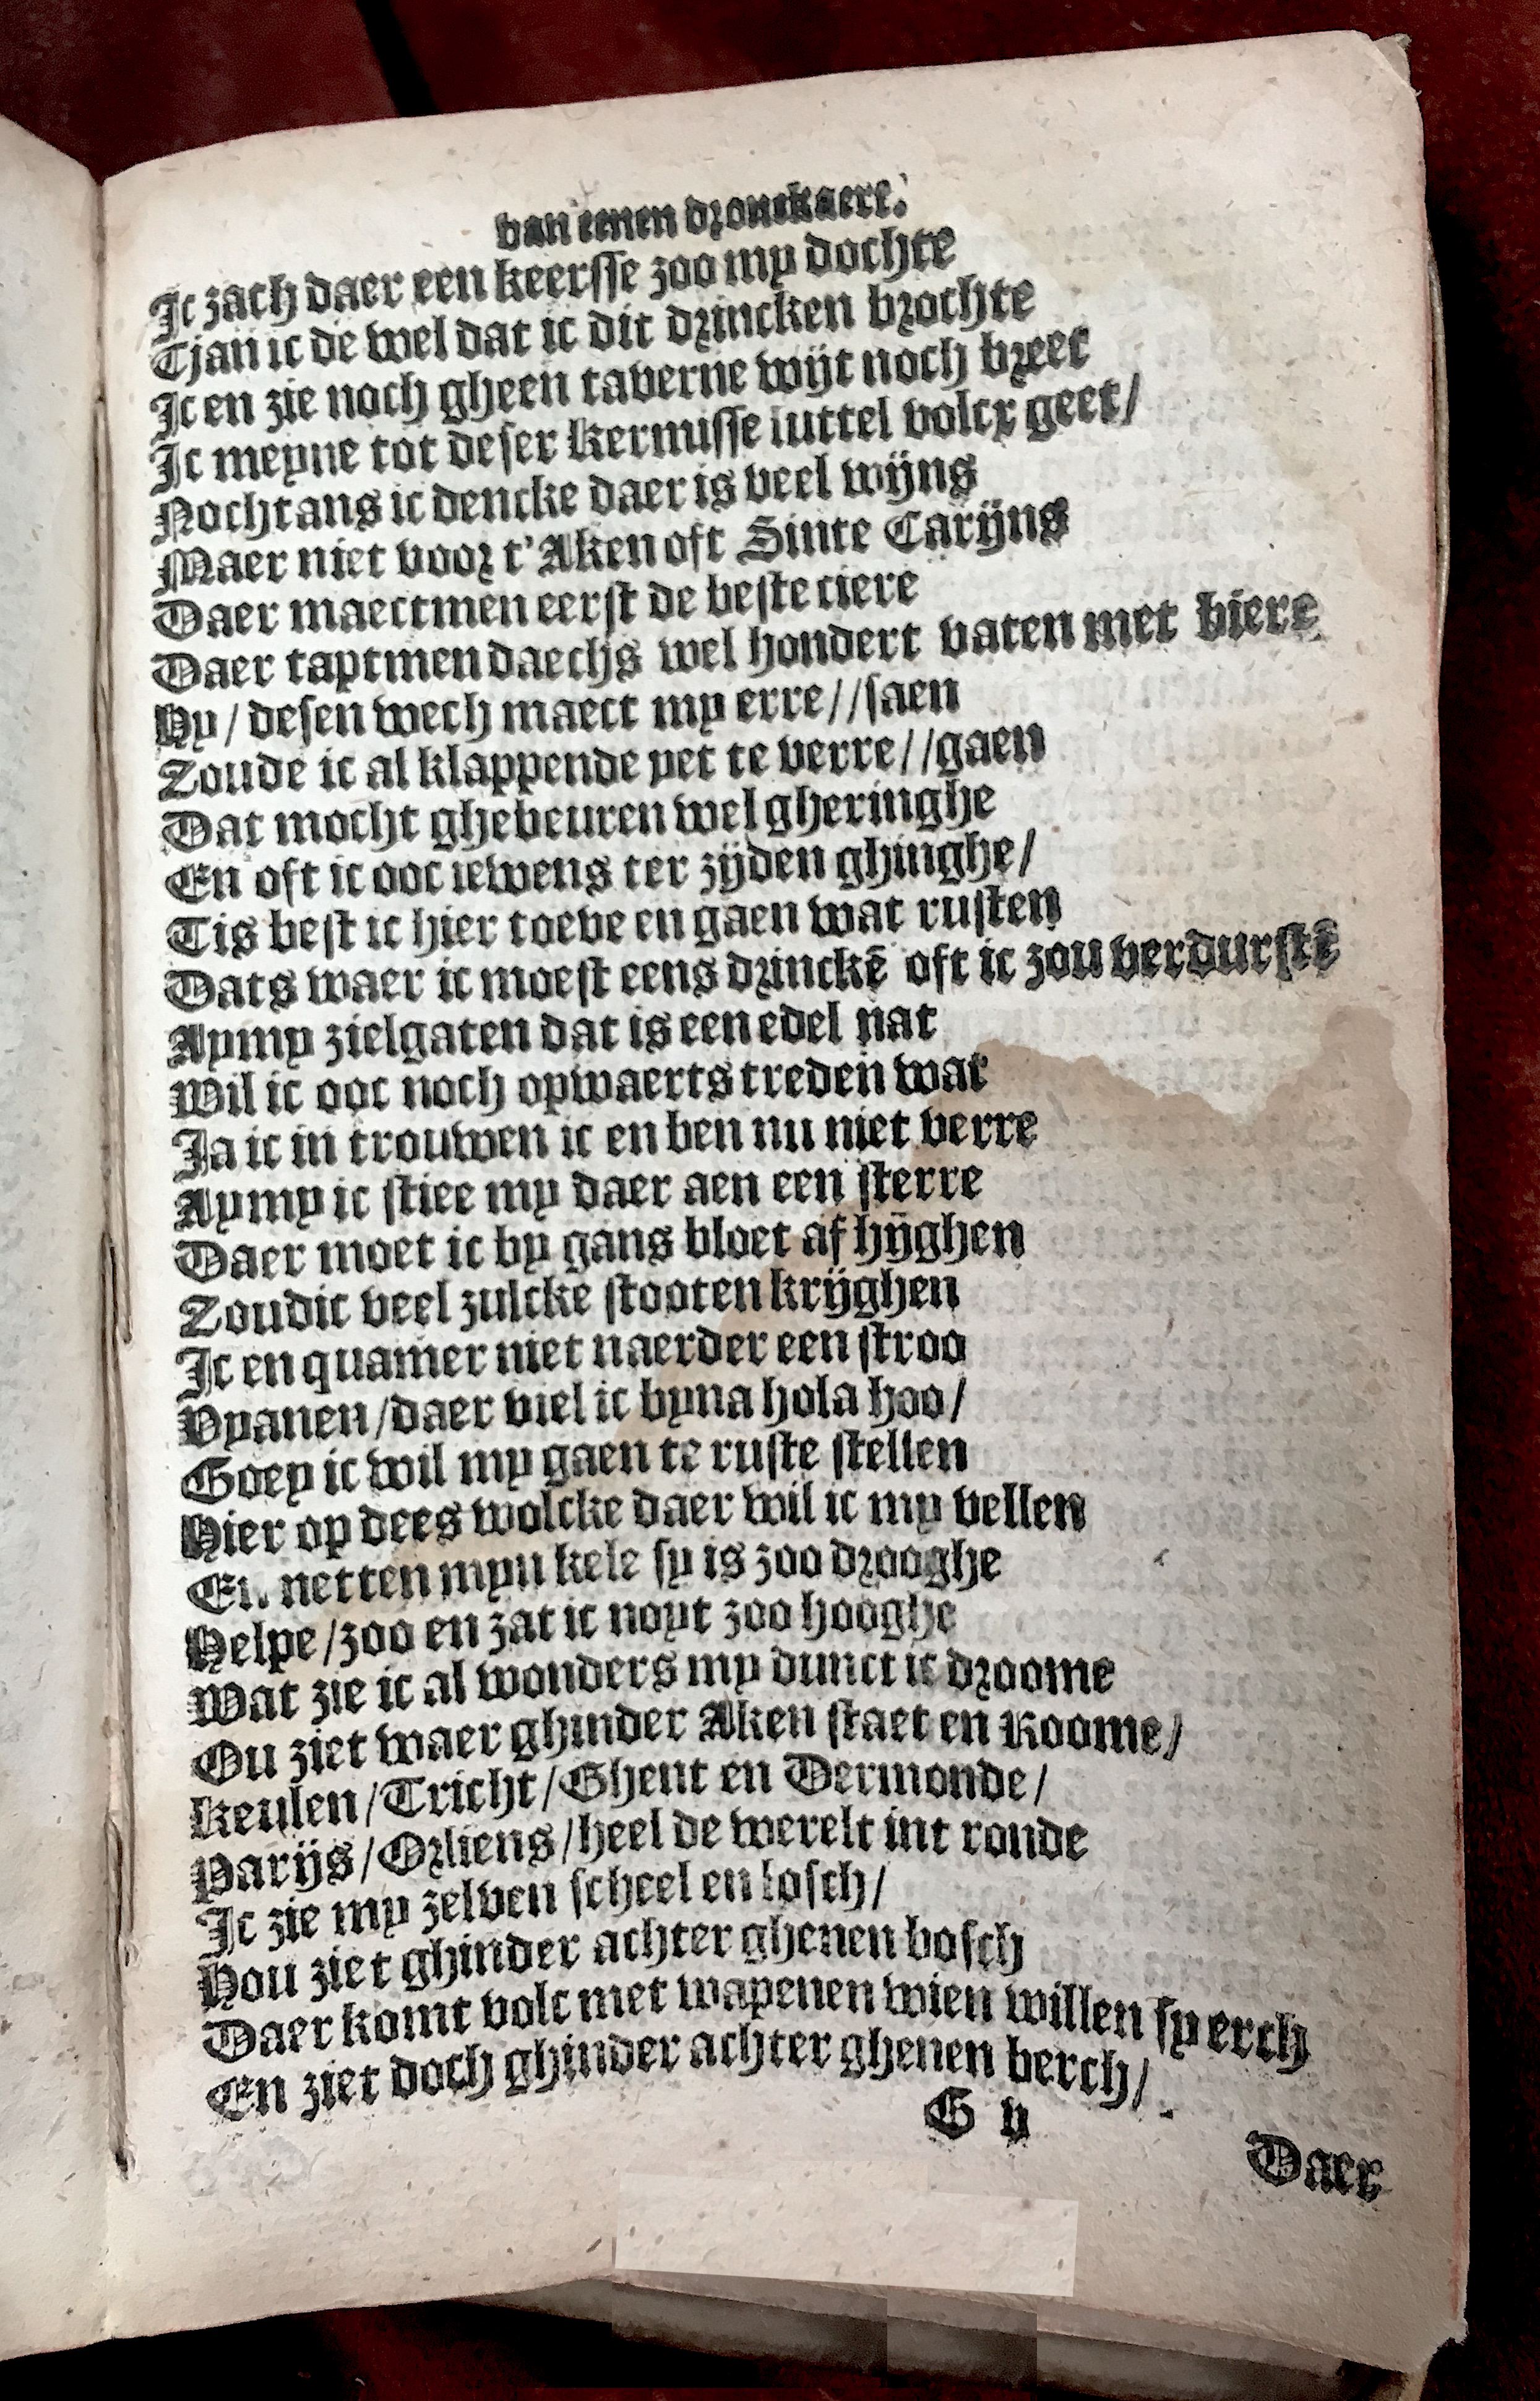 van eenen dronckaert.
Ic zach daer een keersse zoo my dochte
Tjan ic de wel dat ic dit drincken brochte
Ic en zie noch gheen taverne wijt noch breet
Ic meyne tot deser kermisse luttel volcx geet/
Nochtans ic dencke daer is veel wijns
Maer niet voor t'Aken oft Sinte Carijns
Daer maectmen eerst de beste ciere
Daer taptmen daechs wel hondert vaten met biere
Hy/ desen wech maect my erre//saen
Zoude ic al klappende yet te verre//gaen
Dat mocht ghebeuren wel gheringhe
En oft ic ooc iewens ter zijden ghinghe/
Tis best ic hier toeve en gaen wat rusten
Dats waer ic moest eens drinckē oft ic zou verdurstē
Aymy zielgaten dat is een edel nat
Wil ic ooc noch opwaerts treden wat
Ja ic in trouwen ic en ben nu niet verre
Aymy ic stiec my daer aen een sterre
Daer moet ic by gans bloet af hijghen
Zoudic veel zulcke stooten krijghen
Ic en quamer niet naerder een stroo
Vyanen/daer viel ic byna hola hoo/
Goey ic wil my gaen te ruste stellen
Hier op dees wolcke daer wil ic my vellen
En netten myn kele sy is zoo drooghe
Helpe/zoo en zat ic noyt zoo hooghe
Wat zie ic al wonders my dunct ic droome
Ou ziet waer ghinder Aken staet en Roome/
Keulen/Tricht/Ghent en Dermonde/
Parijs/Orliens/heel de werelt int ronde
Ic zie my zelven scheel en losch/
Hou ziet ghinder achter ghenen bosch
Daer komt volc met wapenen wien willen sy erch
En ziet doch ghinder achter ghenen berch/
G v
Daer